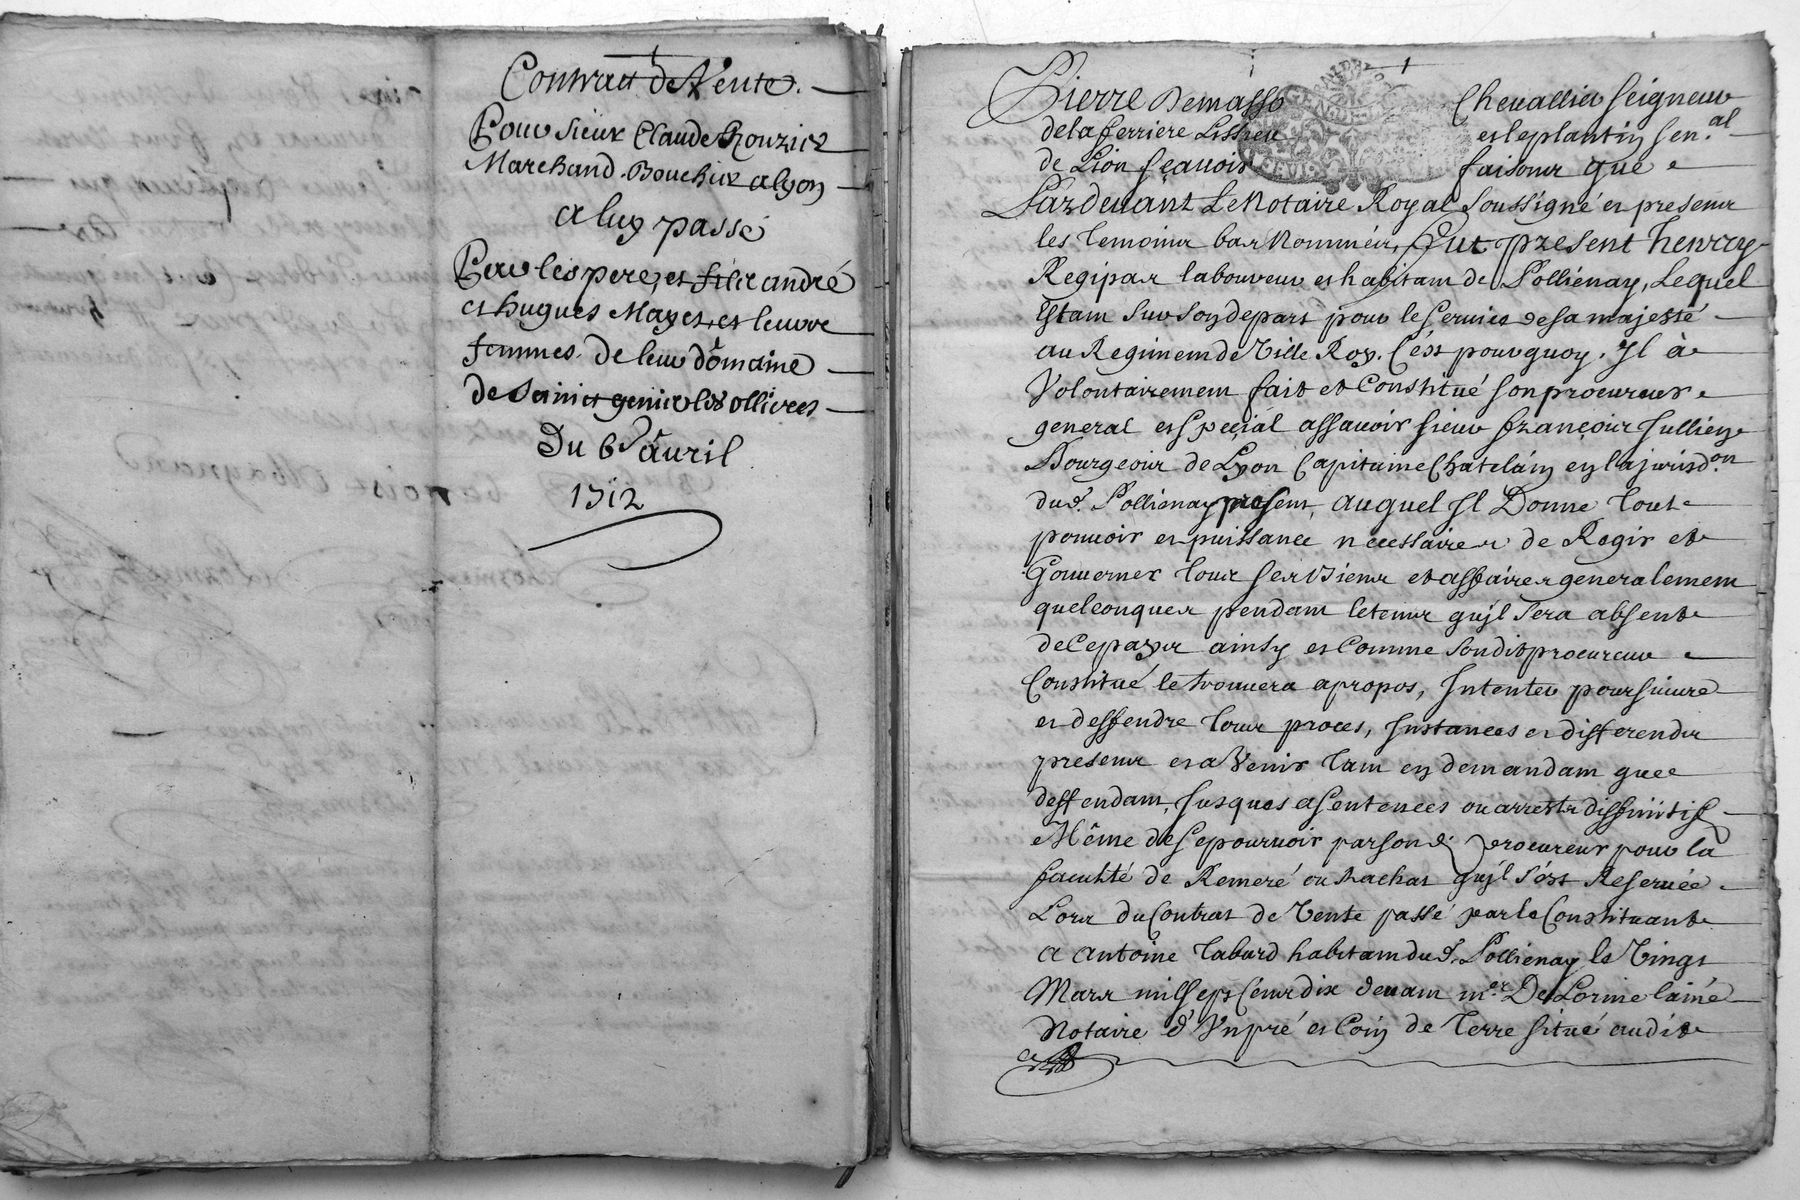 Contract de Vente.
Pour sieur Claude Rouzier
Marchand Boucher a lyon
a luy passé
Par les pere, et filz andré
et hugues Mayet, et leurs
femmes de leur domaine
de Sainct genis les ollieres
Du 6e auril
1712
Pierre Demasso Cheuallier seigneur
de la ferriere Lissieu et le plantin sen.al
de Lion sçauoir faisons que
Pardeuant Le Notaire Royal soussigné et presens
les temoins bas Nommés, fut present henry
Regipas laboureur et habitant de Pollienay, Lequel
Estant sur son depart pour le seruice de sa majesté
au Regiment de Ville Roy. C'est pourquoy, Il à
Volontairement fait et Constitué son procureur
general et special assauoir sieur françois Jullien
Bourgeois de Lyon Capitaine Chatelain en la jurisd.on
dud. Pollienay present, auquel Il Donne tout
pouuoir et puissance necessaires de Regir et
Gouuerner tous ses biens et affaires generalement
quelconques pendant le tems qu'il sera absent
de Ce pays ainsy et Comme sondit procureur
Constitué le trouuera apropos, Intenter poursuiure
et deffendre tous proces, Instances et differends
presens et a Venir tant en demandant que
deffendant, Jusques a sentences ou arrests diffinitifs
Même de se pouruoir par sond. procureur pour la
faculté de Remeré ou Rachat qu'il s'est Reseruée
Lors du Contrat de Vente passé par le Constituant
a antoine tabard habitant dud. Pollienay le Vingt
Mars mil sept Cens dix deuant m.er De Lorme l'ainé
Notaire d'Vn pré et Coin de Terre situé audit